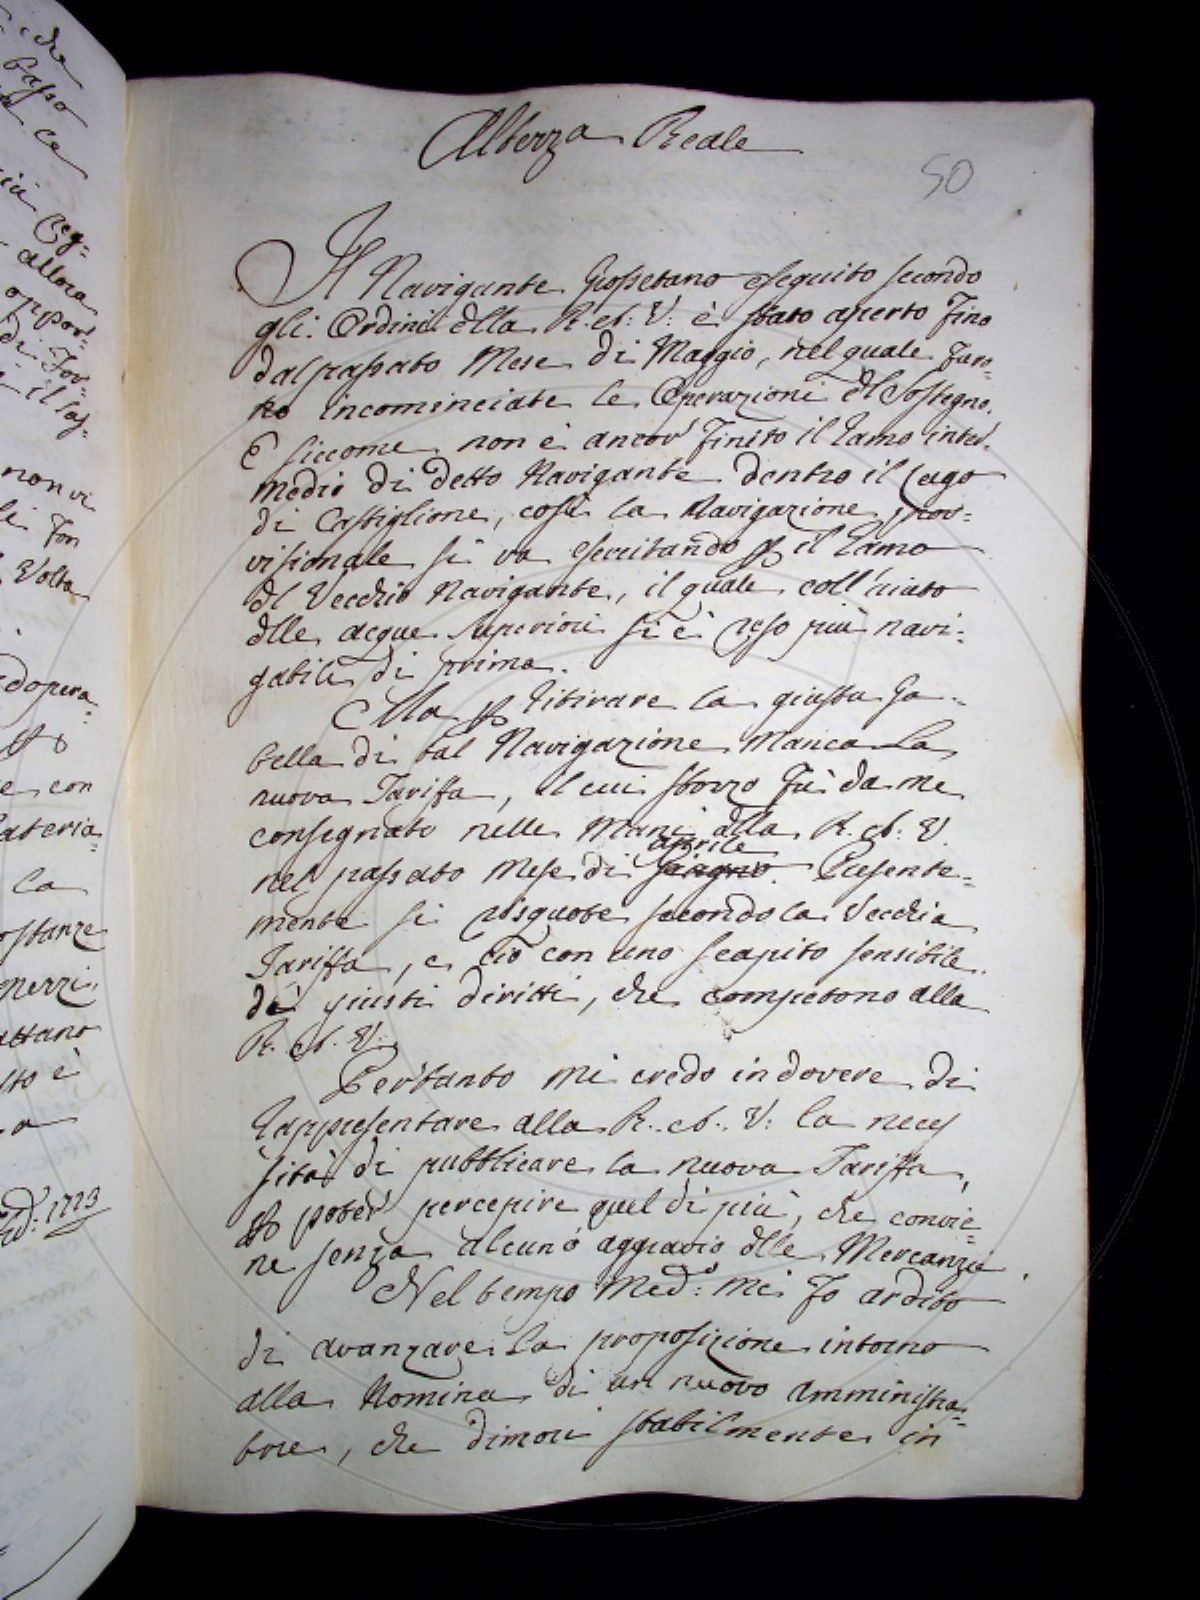 Altezza Reale
50
Il Navigante Grossetano eseguito secondo
gli Ordini della R. A. V. è stato aperto fino
dal passato Mese di Maggio, nel quale furo=
no incominciate le Operazioni del Sostegno.
E siccome non è ancor finito il ramo inter=
medio di detto Navigante dentro il Lago
di Castiglione, così la Navigazione prov=
visionale si va esercitando p il ramo
del Vecchio Navigante, il quale coll'aiuto
delle acque superiori si è reso più navi=
gabile di prima.
Ma p ritirare la giusta Ga=
bella di tal Navigazione manca la
nuova Tariffa, il cui sbozzo fù da me
consegnato nelle Mani della R. A. V.
aprile
nel passato Mese di Giugno. Presente=
mente si risquote secondo la Vecchia
Tariffa, e ciò con uno scapito sensibile
dei giusti diritti, che competono alla
R. A. V.
Pertanto mi credo in dovere di
rappresentare alla R. A. V: la neces
sità di pubblicare la nuova Tariffa,
poter percepire quel di più, che convie=
ne senza alcuno aggravio delle Mercanzie.
Nel tempo Med:o mi fo ardito
di avanzare la proposizione intorno
alla Nomina di un nuovo Amministra=
tore, che dimori stabilmente in
che
basso
allora
oppor=
non vi
Volta
dopera=
e con
ateria=
la
ostanze
merzi
attano
sto è
1773